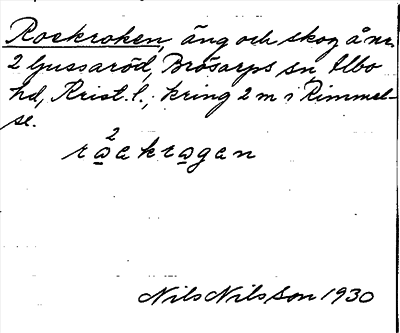 Roekroken, äng och skog å nr.
2 Ljussaröd, Brösarps sn, Albo
hd, Krist. l.; kring 2 m i Rimmel-
se.
2
ra̲a k r a̲ g a n
Nils Nilsson 1930